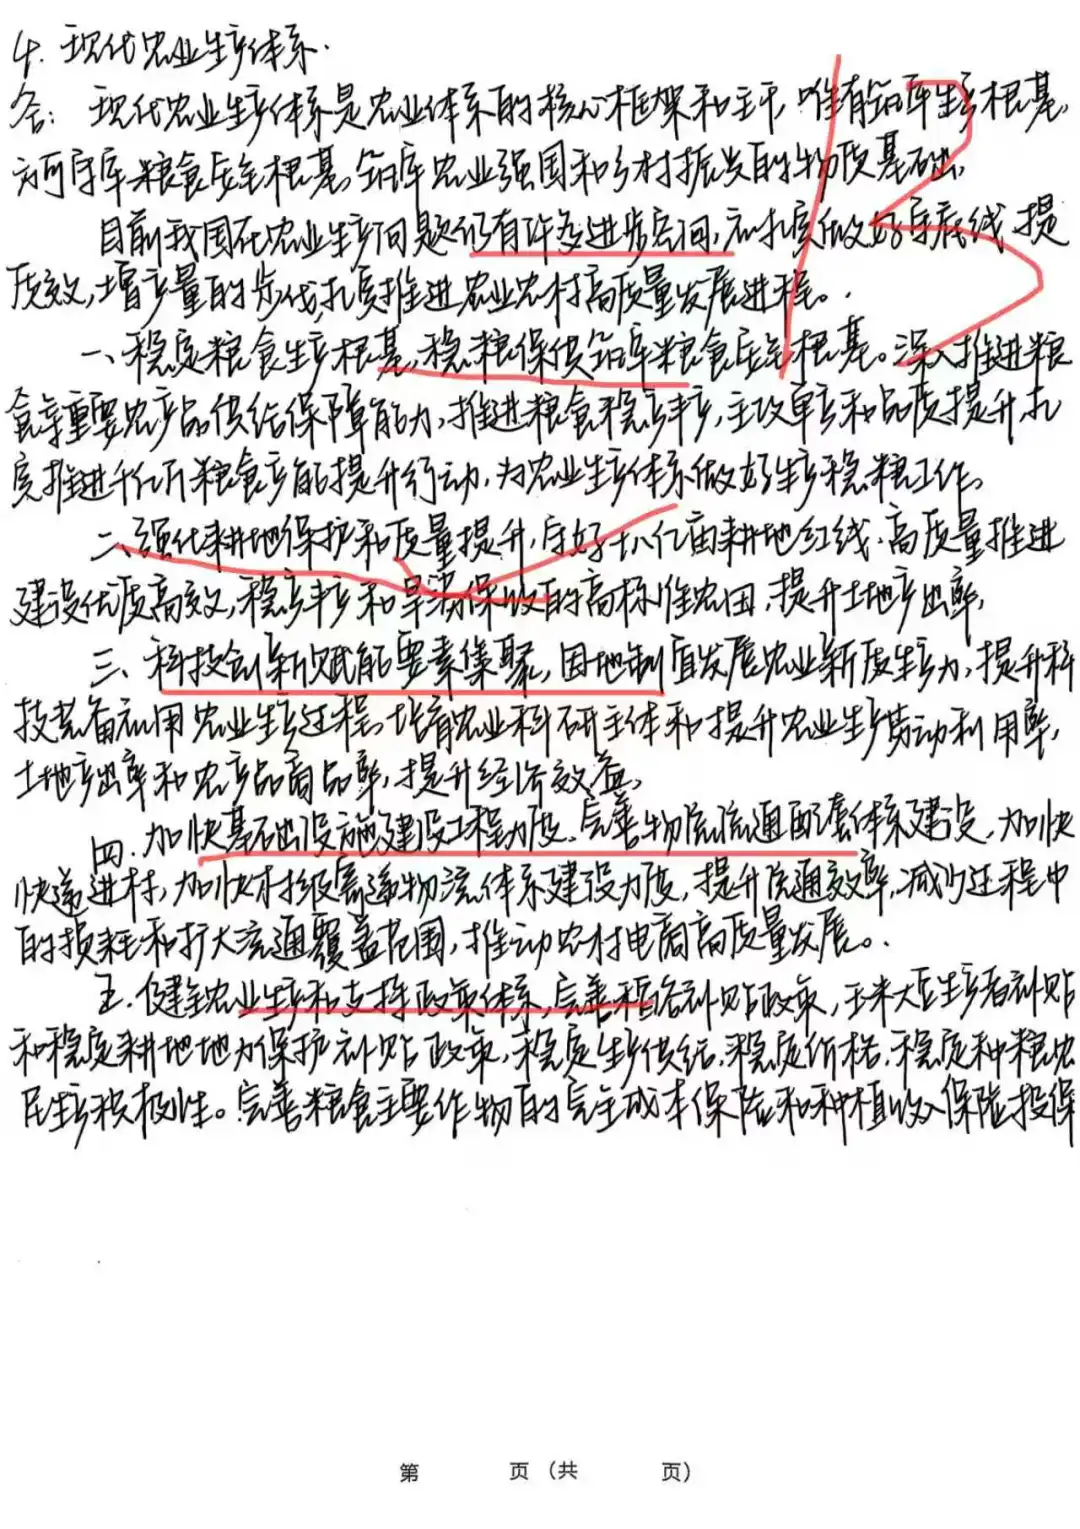 4. 现代农业生产体系.
答: 现代农业生产体系是农业体系的核心框架和主干, 唯有筑牢生产根基,
方可守牢粮食安全根基, 筑牢农业强国和乡村振兴的物质基础.
目前我国在农业生产问题仍有许多进步空间, 应扎实做好守底线, 提
质效, 增产量的步伐, 扎实推进农业农村高质量发展进程。.
一、稳定粮食生产根基, 稳粮保供筑牢粮食安全根基。深入推进粮
食等重要农产品供给保障能力, 推进粮食稳产丰产, 主攻单产和品质提升, 扎
实推进千亿斤粮食产能提升行动, 为农业生产体系做好生产稳粮工作。
二、强化耕地保护和质量提升, 守好十八亿亩耕地红线. 高质量推进
建设优质高效, 稳产丰产和旱涝保收的高标准农田, 提升土地产出率,
三、科技创新赋能要素集聚, 因地制宜发展农业新质生产力, 提升科
技装备应用农业生产过程, 培育农业科研主体和提升农业生产劳动利用率,
土地产出率和农产品商品率, 提升经济效益,
四. 加快基础设施建设工程力度. 完善物流流通配套体系建设, 加快
快递进村, 加快村级寄递物流体系建设力度, 提升流通效率, 减少过程中
的损耗和扩大流通覆盖范围, 推动农村电商高质量发展。.
五. 健全农业生产和支持政策体系, 完善稻谷补贴政策, 玉米大豆生产者补贴
和稳定耕地地力保护补贴政策, 稳定生产供给, 稳定价格, 稳定种粮农
民生产积极性。完善粮食主要作物的完全成本保险和种植收入保险投保
13
第 页 (共 页)